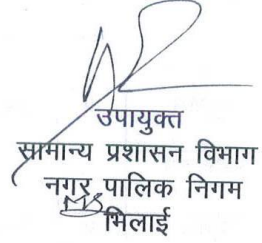 उपायुक्त
सामान्य प्रशासन विभाग
नगर पालिक निगम
भिलाई